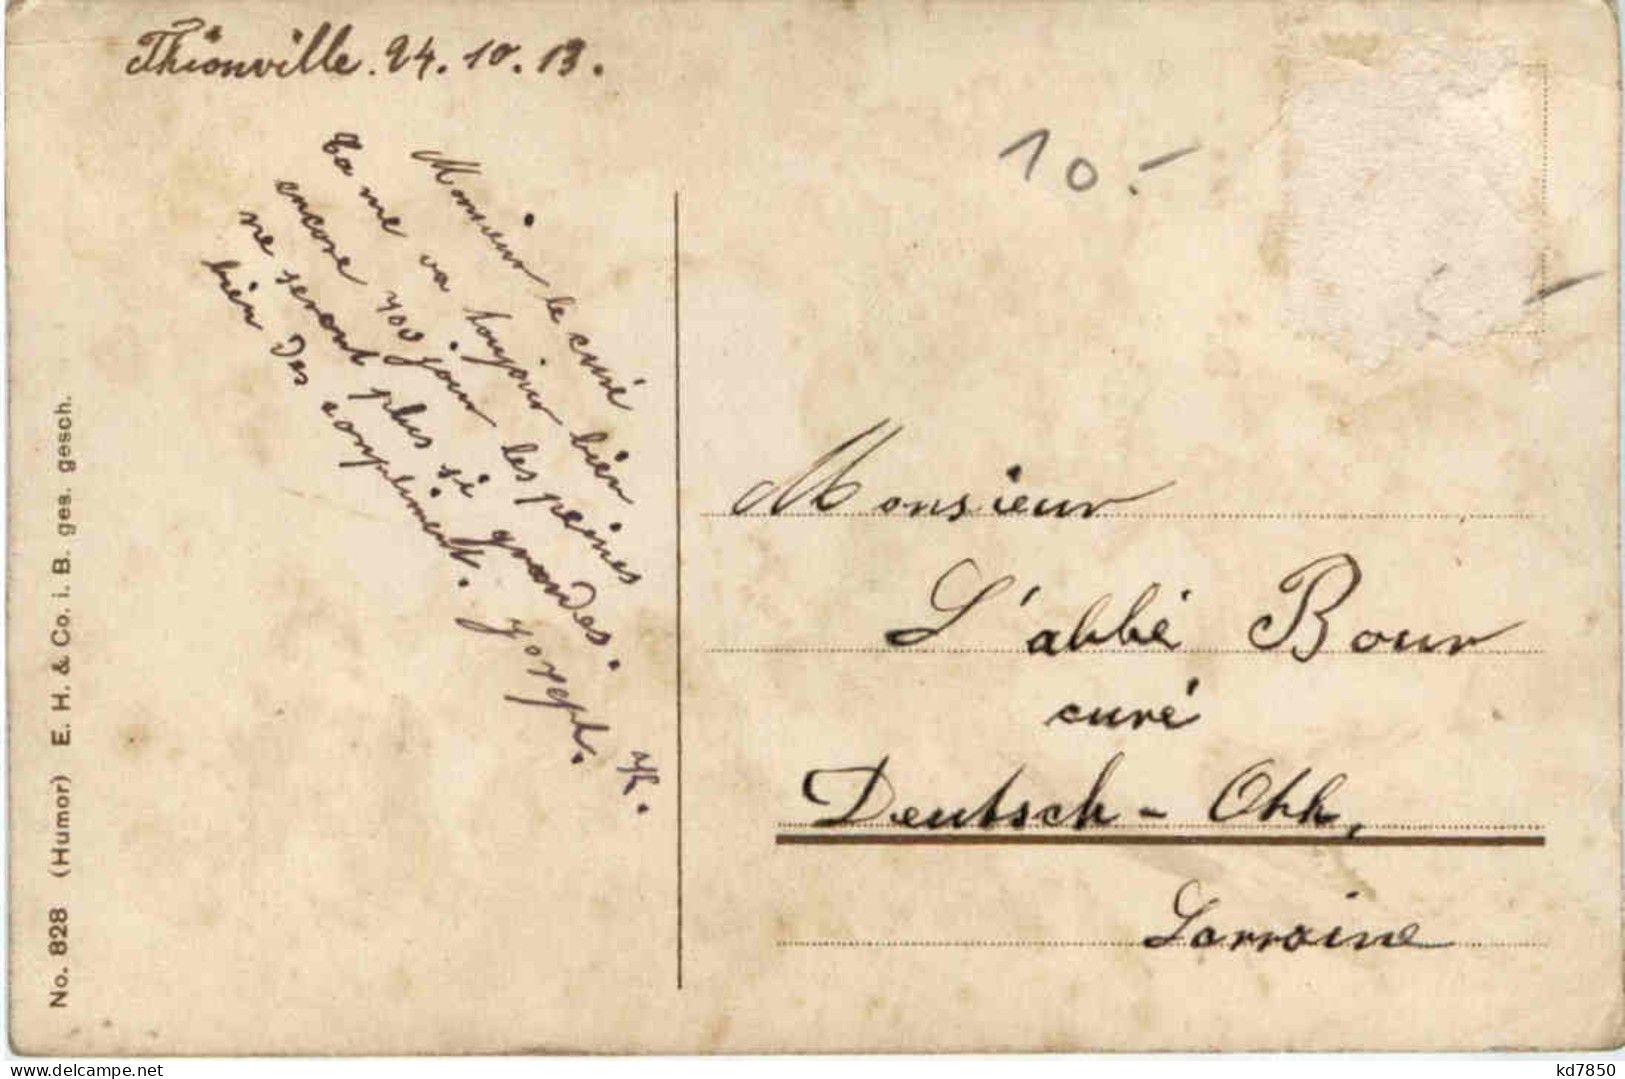 Thionville. 24. 10. 13.
10.-
Monsieur le curé
Ça me va toujour bien
encore 700 jour les peines
ne seront plus si grandes.
bien des complimett. Joseph.
Monsieur
L'abbé Bour
curé
Deutsch-Oth,
Lorraine
No. 828 (Humor) E. H. & Co. i. B. ges. gesch.
kd7850